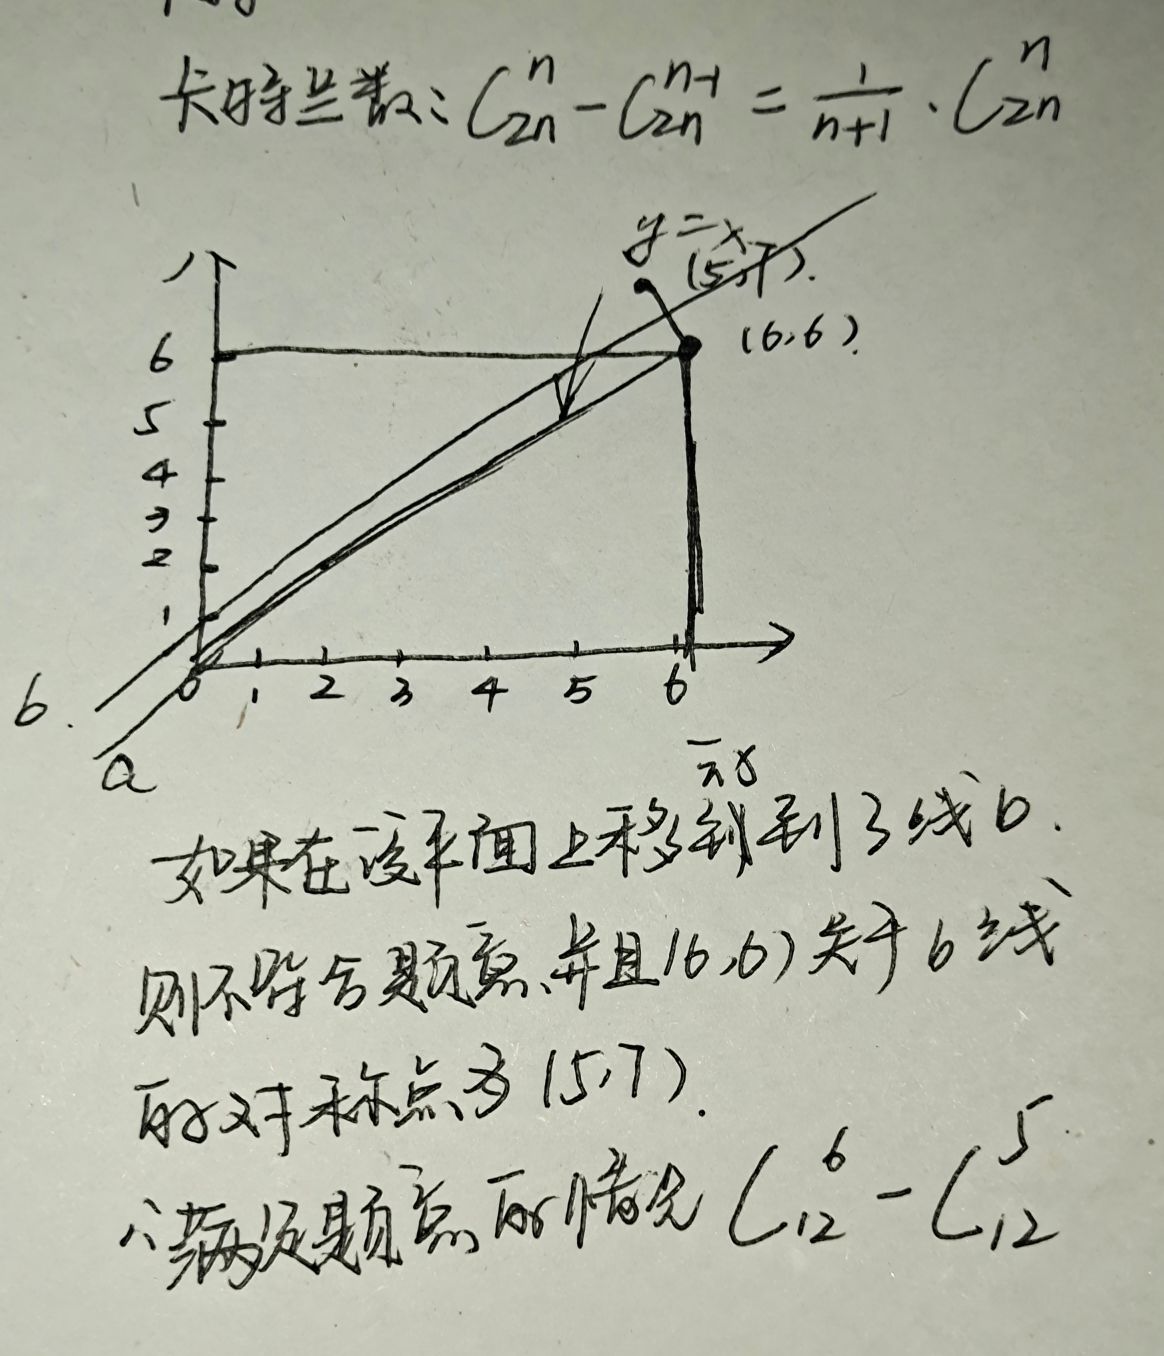 卡特兰数: C_{2n}^{n} - C_{2n}^{n-1} = \frac{1}{n+1} · C_{2n}^{n}
y=x
(5,7).
(6,6).
6
5
4
3
2
1
0 1 2 3 4 5 6
b.
a
如果在该平面上移到到了线b.
则不符合题意,并且(6,6)关于b线
的对称点为(5,7).
∴满足题意的情况 C_{12}^{6} - C_{12}^{5}